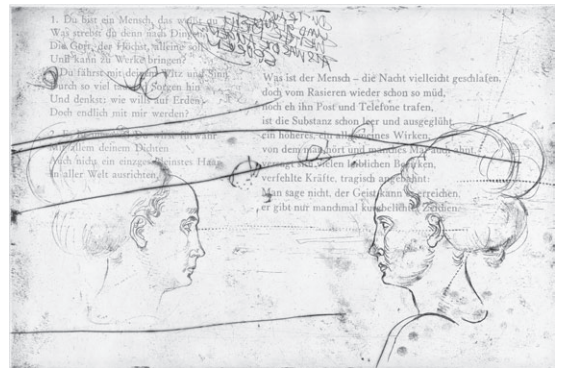 1. Du bist ein Mensch, das weißt du
Was strebst du denn nach Dingen,
Die Gott, der Höchst, alleine soll
Und kann zu Werke bringen?
Du fährst mit deinem Witz und Sinn
Durch so viel tausend Sorgen hin
Und denkst: wie will's auf Erden
Doch endlich mit mir werden?
2. Es
Mit allem deinem Dichten
Auch nicht ein einzges kleinstes Haar
In aller Welt ausrichten,
Was ist der Mensch – die Nacht vielleicht geschlafen,
doch vom Rasieren wieder schon so müd,
noch eh ihn Post und Telefone trafen,
ist die Substanz schon leer und ausgeglüht,
ein höheres, ein allgemeines Wirken,
von dem man hört und manches Mal auch ahnt,
versagt sich vielen leiblichen Bezirken,
verfehlte Kräfte, tragisch angebahnt:
Man sage nicht, der Geist kann es erreichen,
er gibt nur manchmal kurzbelichtet Zeichen.